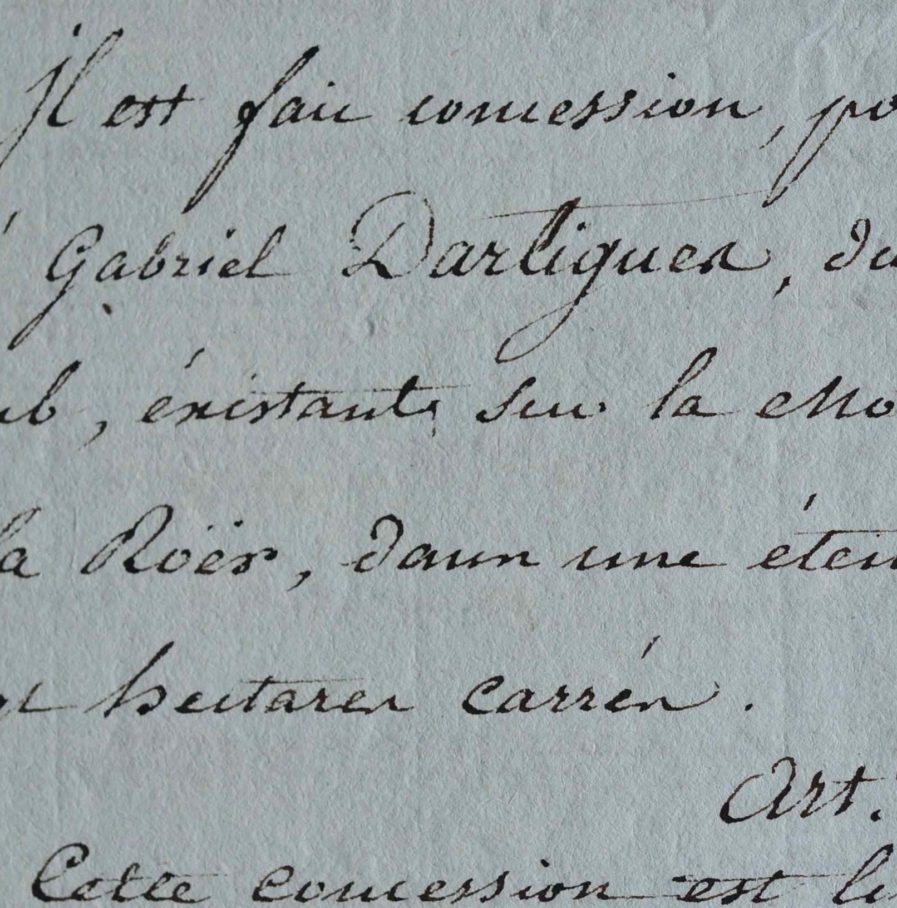 Il est fait concession, po
Gabriel Dartigues, du
mb, éxistante sur la Mo
la Roër, dans une éten
gt hectares carrés.
Art.
Cette concession est li